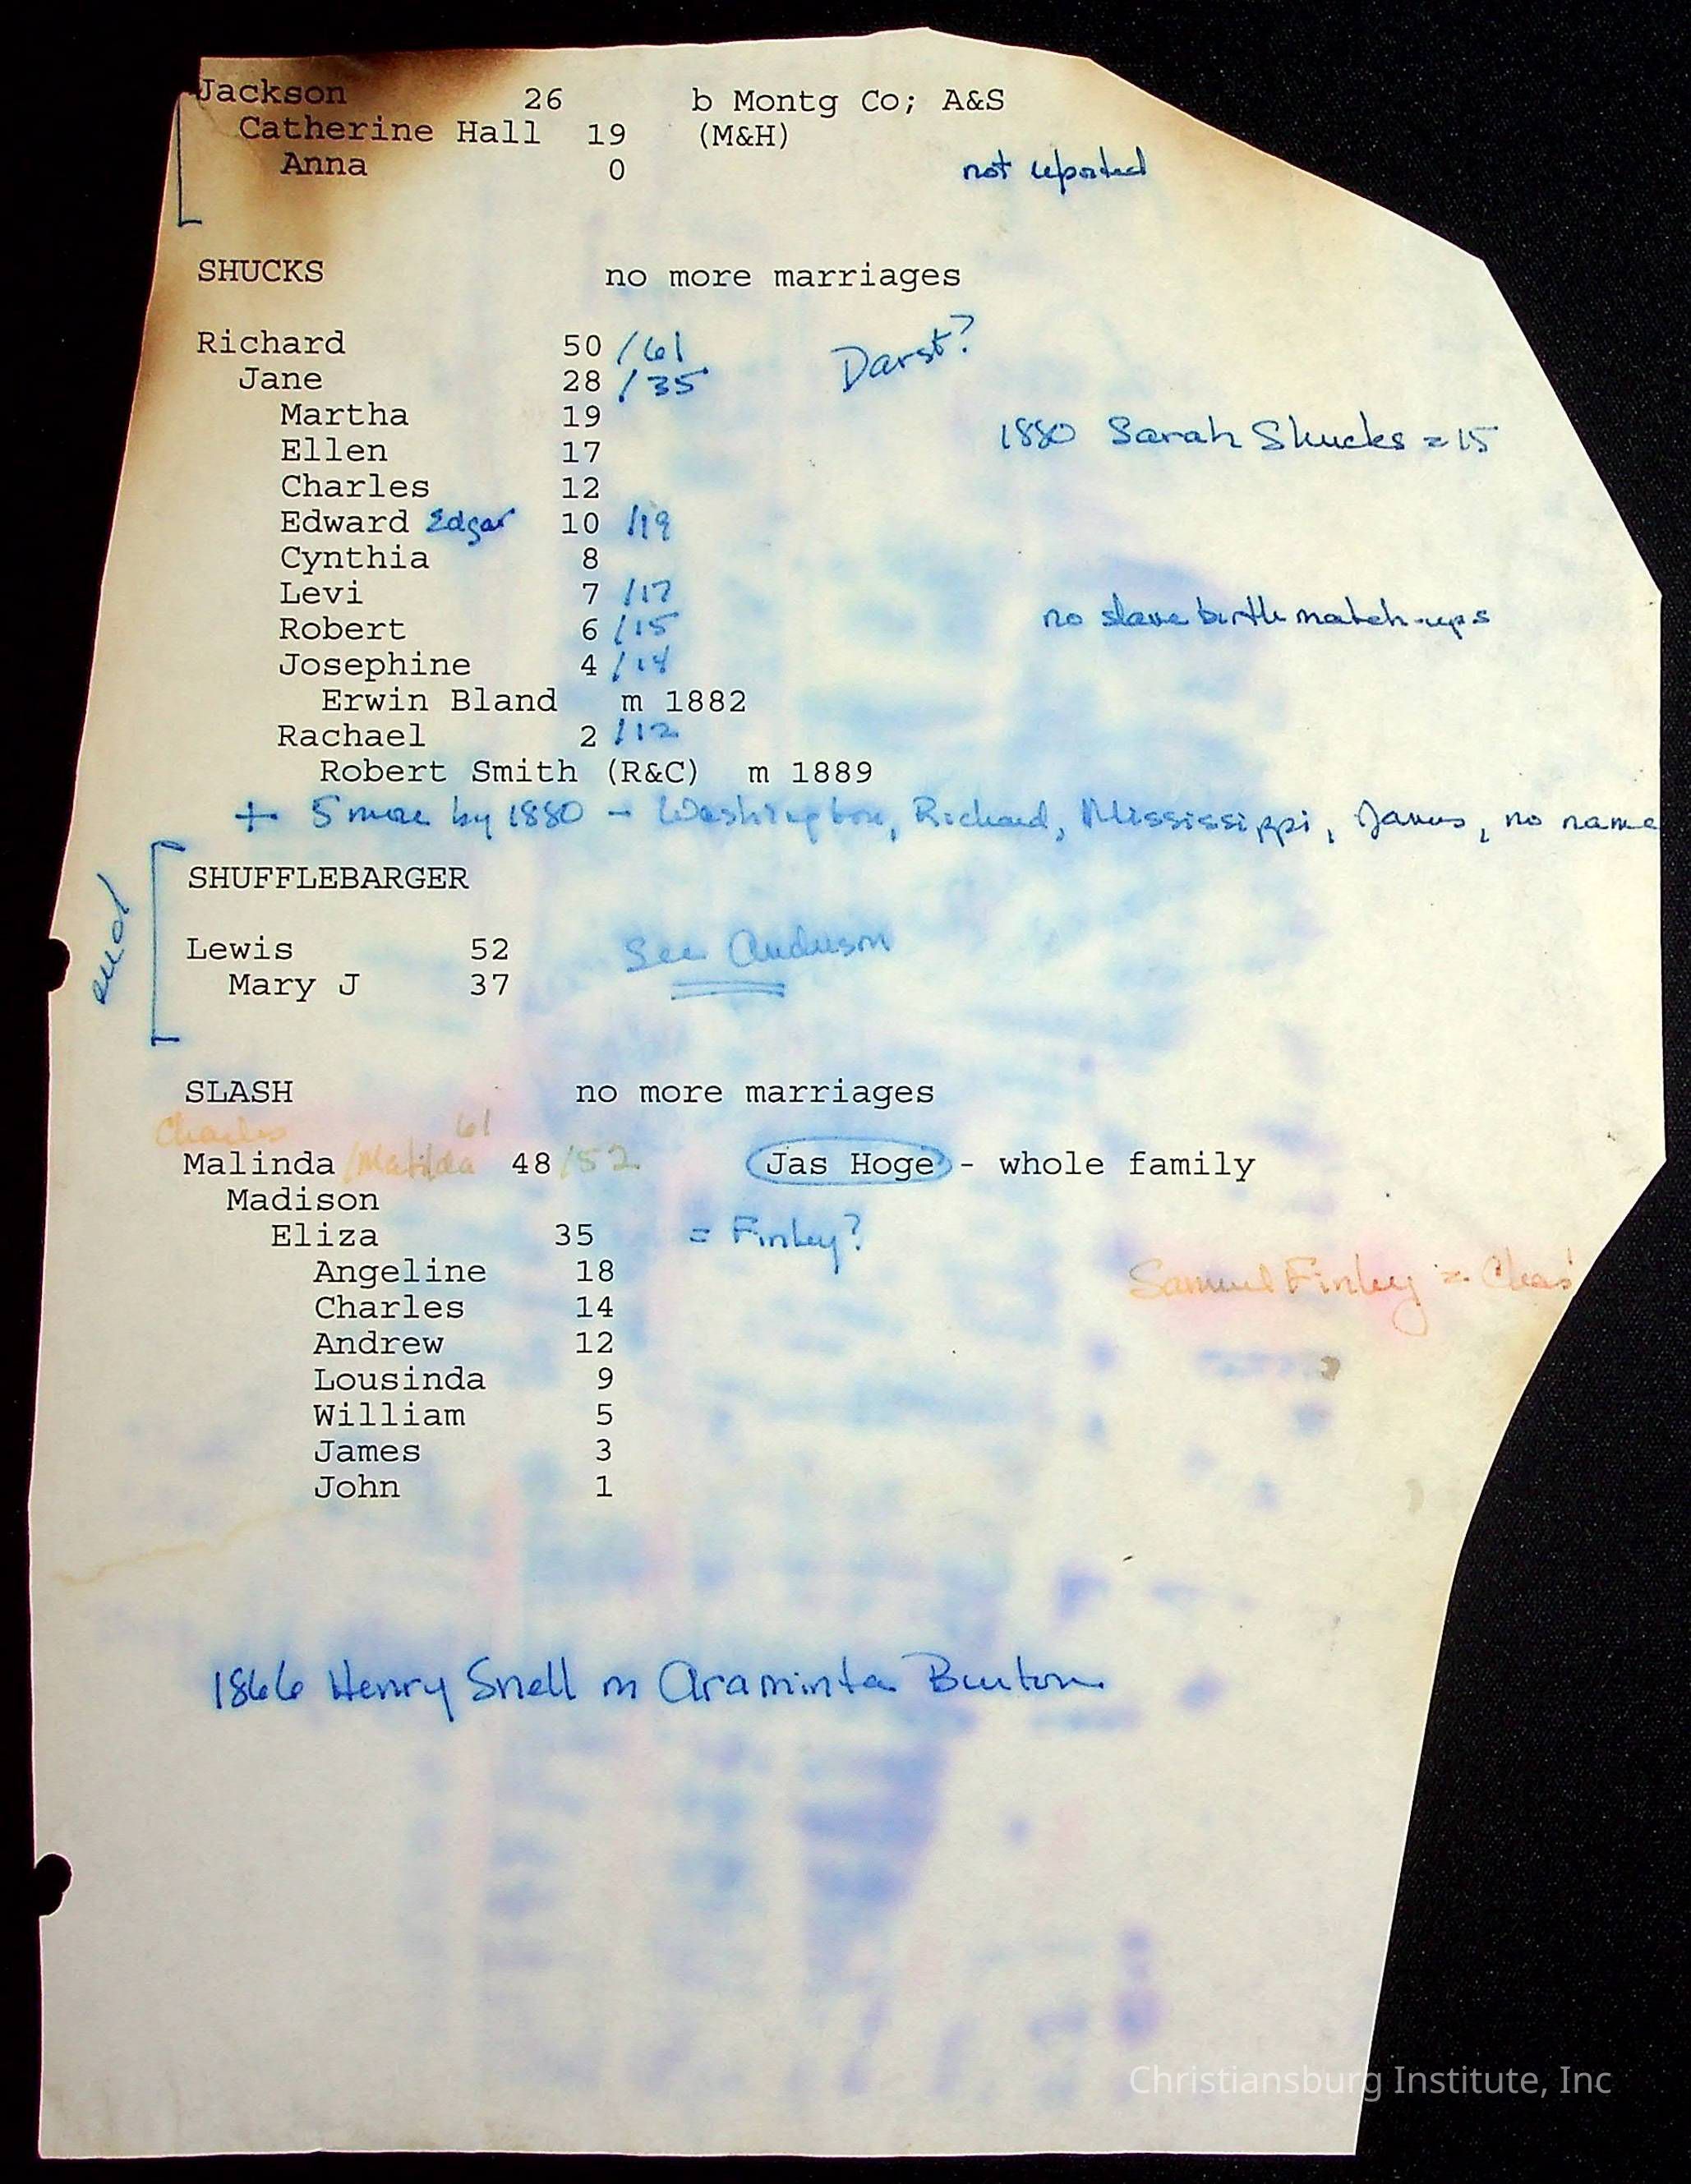 Jackson 26 b Montg Co; A&S
Catherine Hall 19 (M&H)
Anna 0 not reported
SHUCKS no more marriages
Richard 50 /61 Darst?
Jane 28 /35
Martha 19 1880 Sarah Shucks = 15
Ellen 17
Charles 12
Edward Edgar 10 /19
Cynthia 8
Levi 7 /17 no slave birth match-ups
Robert 6 /15
Josephine 4 /14
Erwin Bland m 1882
Rachael 2 /12
Robert Smith (R&C) m 1889
+ 5 more by 1880 - Washington, Richard, Mississippi, James, no name
SHUFFLEBARGER
Lewis 52 See Anderson
Mary J 37
SLASH no more marriages
Charles 61
Malinda /Matilda 48 /52 Jas Hoge - whole family
Madison
Eliza 35 = Finley?
Angeline 18 Samuel Finley = Chas
Charles 14
Andrew 12
Lousinda 9
William 5
James 3
John 1
1866 Henry Snell m Araminta Burton
Christiansburg Institute, Inc